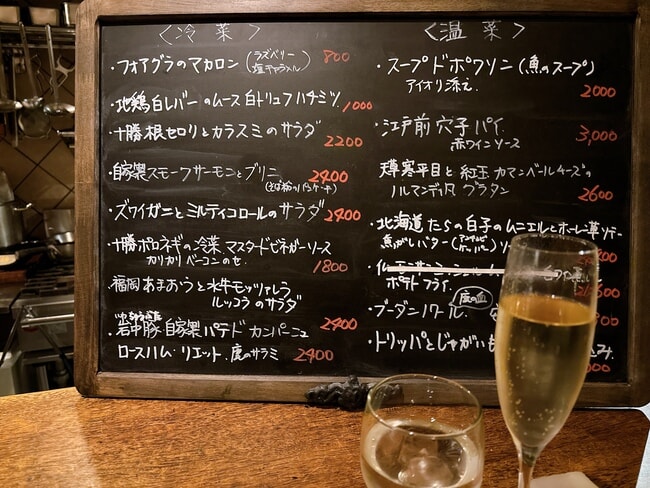 〈冷菜〉
・フォアグラのマカロン (ラズベリー 塩キャラメル) 800
・地鶏白レバーのムース 白トリュフハチミツ 1000
・十勝根セロリとカラスミのサラダ 2200
・自家製スモークサーモンとブリニ 2400
(そば粉のパンケーキ)
・ズワイガニとミルティコロールのサラダ 2400
・十勝ポロネギの冷菜 マスタードビネガーソース
カリカリベーコンのせ. 1800
・福岡あまおうと水牛モッツァレラ
ルッコラのサラダ 2400
・岩中豚・自家製パテドカンパーニュ
ロースハム・リエット.鹿のサラミ 2400
〈温菜〉
・スープドポワソン (魚のスープ)
アイオリ添え. 2000
・江戸前穴子パイ.
赤ワインソース 3,000
寒平目と紅玉カマンベールチーズの
ノルマンディ風グラタン 2600
・北海道たらの白子のムニエルとホーレン草ソテー
焦がしバター
ポテトフライ.
・ブーダンノワール. (鹿の血)
・トリッパとじゃがいも